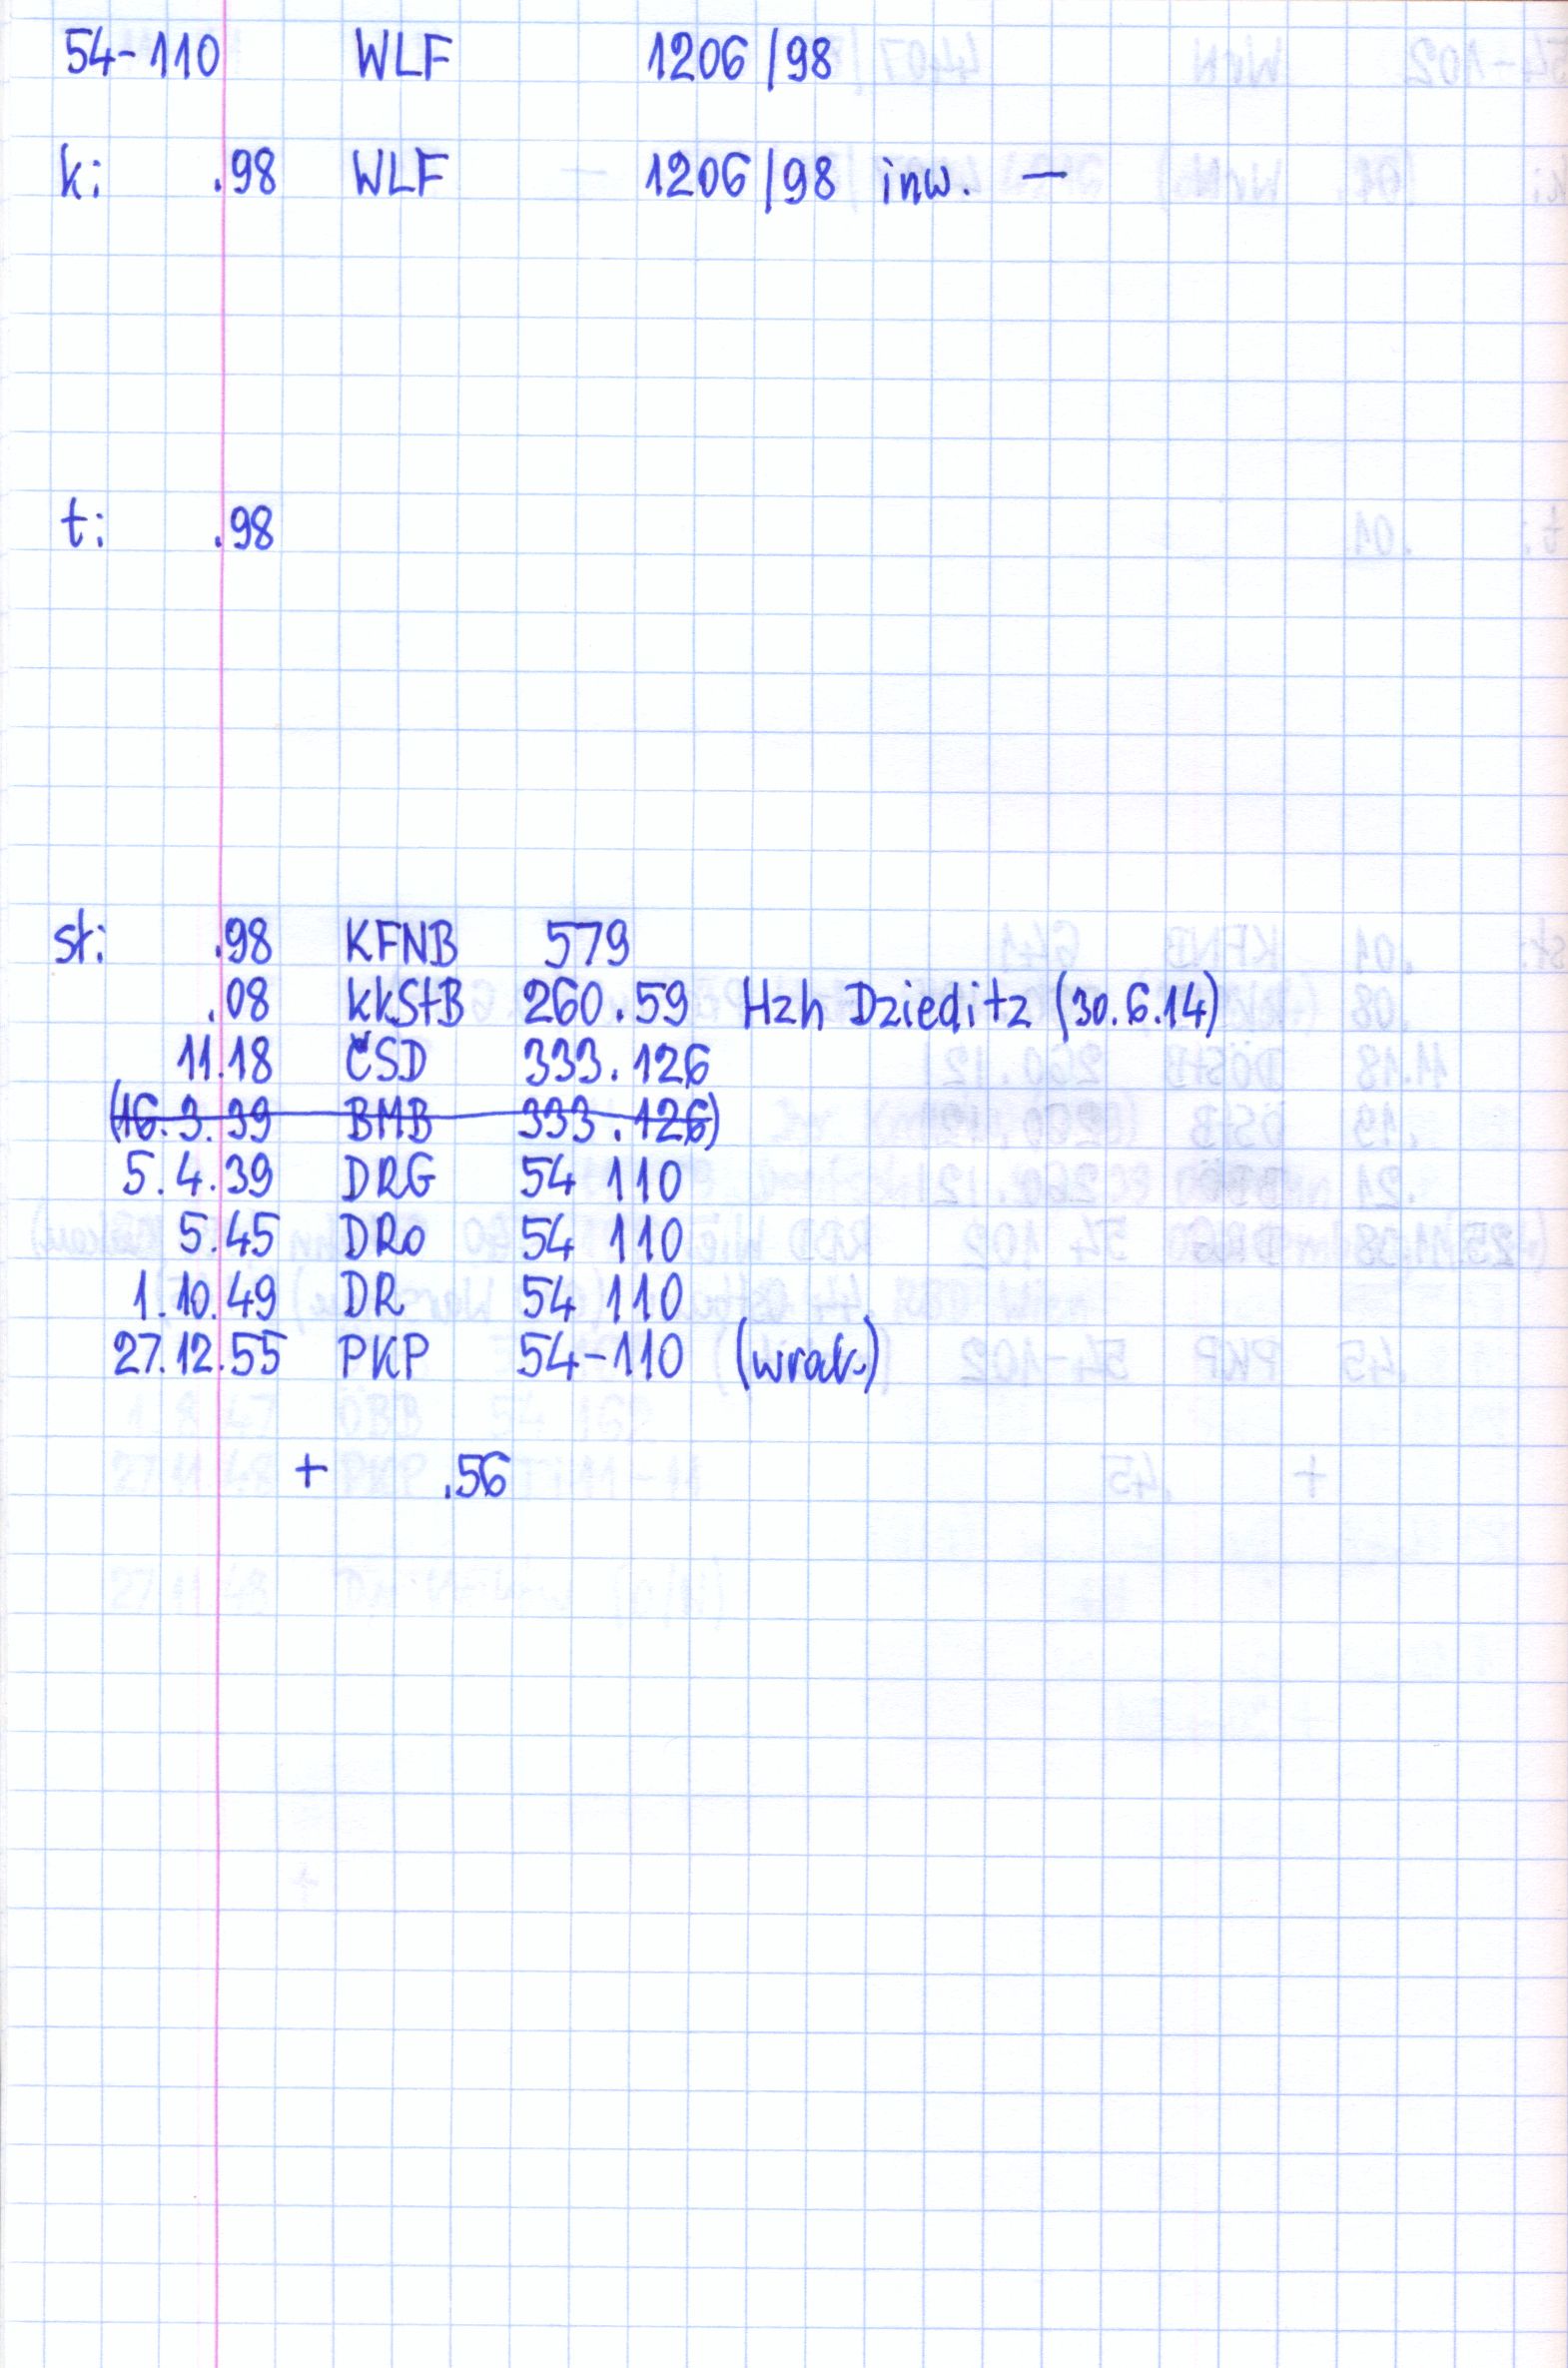 54-110 WLF 1206/98
k: .98 WLF 1206/98 inw. —
t: .98
st: .98 KFNB 579
.08 kkStB 260.59 Hzh Dzieditz (30.6.14)
11.18 ČSD 333.126
(16.3.39 BMB 333.126)
5.4.39 DRG 54 110
5.45 DRo 54 110
1.10.49 DR 54 110
27.12.55 PKP 54-110 (wrak.)
+ .56